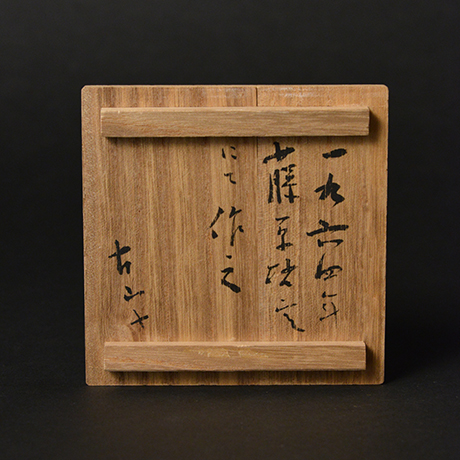 一九六四年
藤原
にて作之
古山子